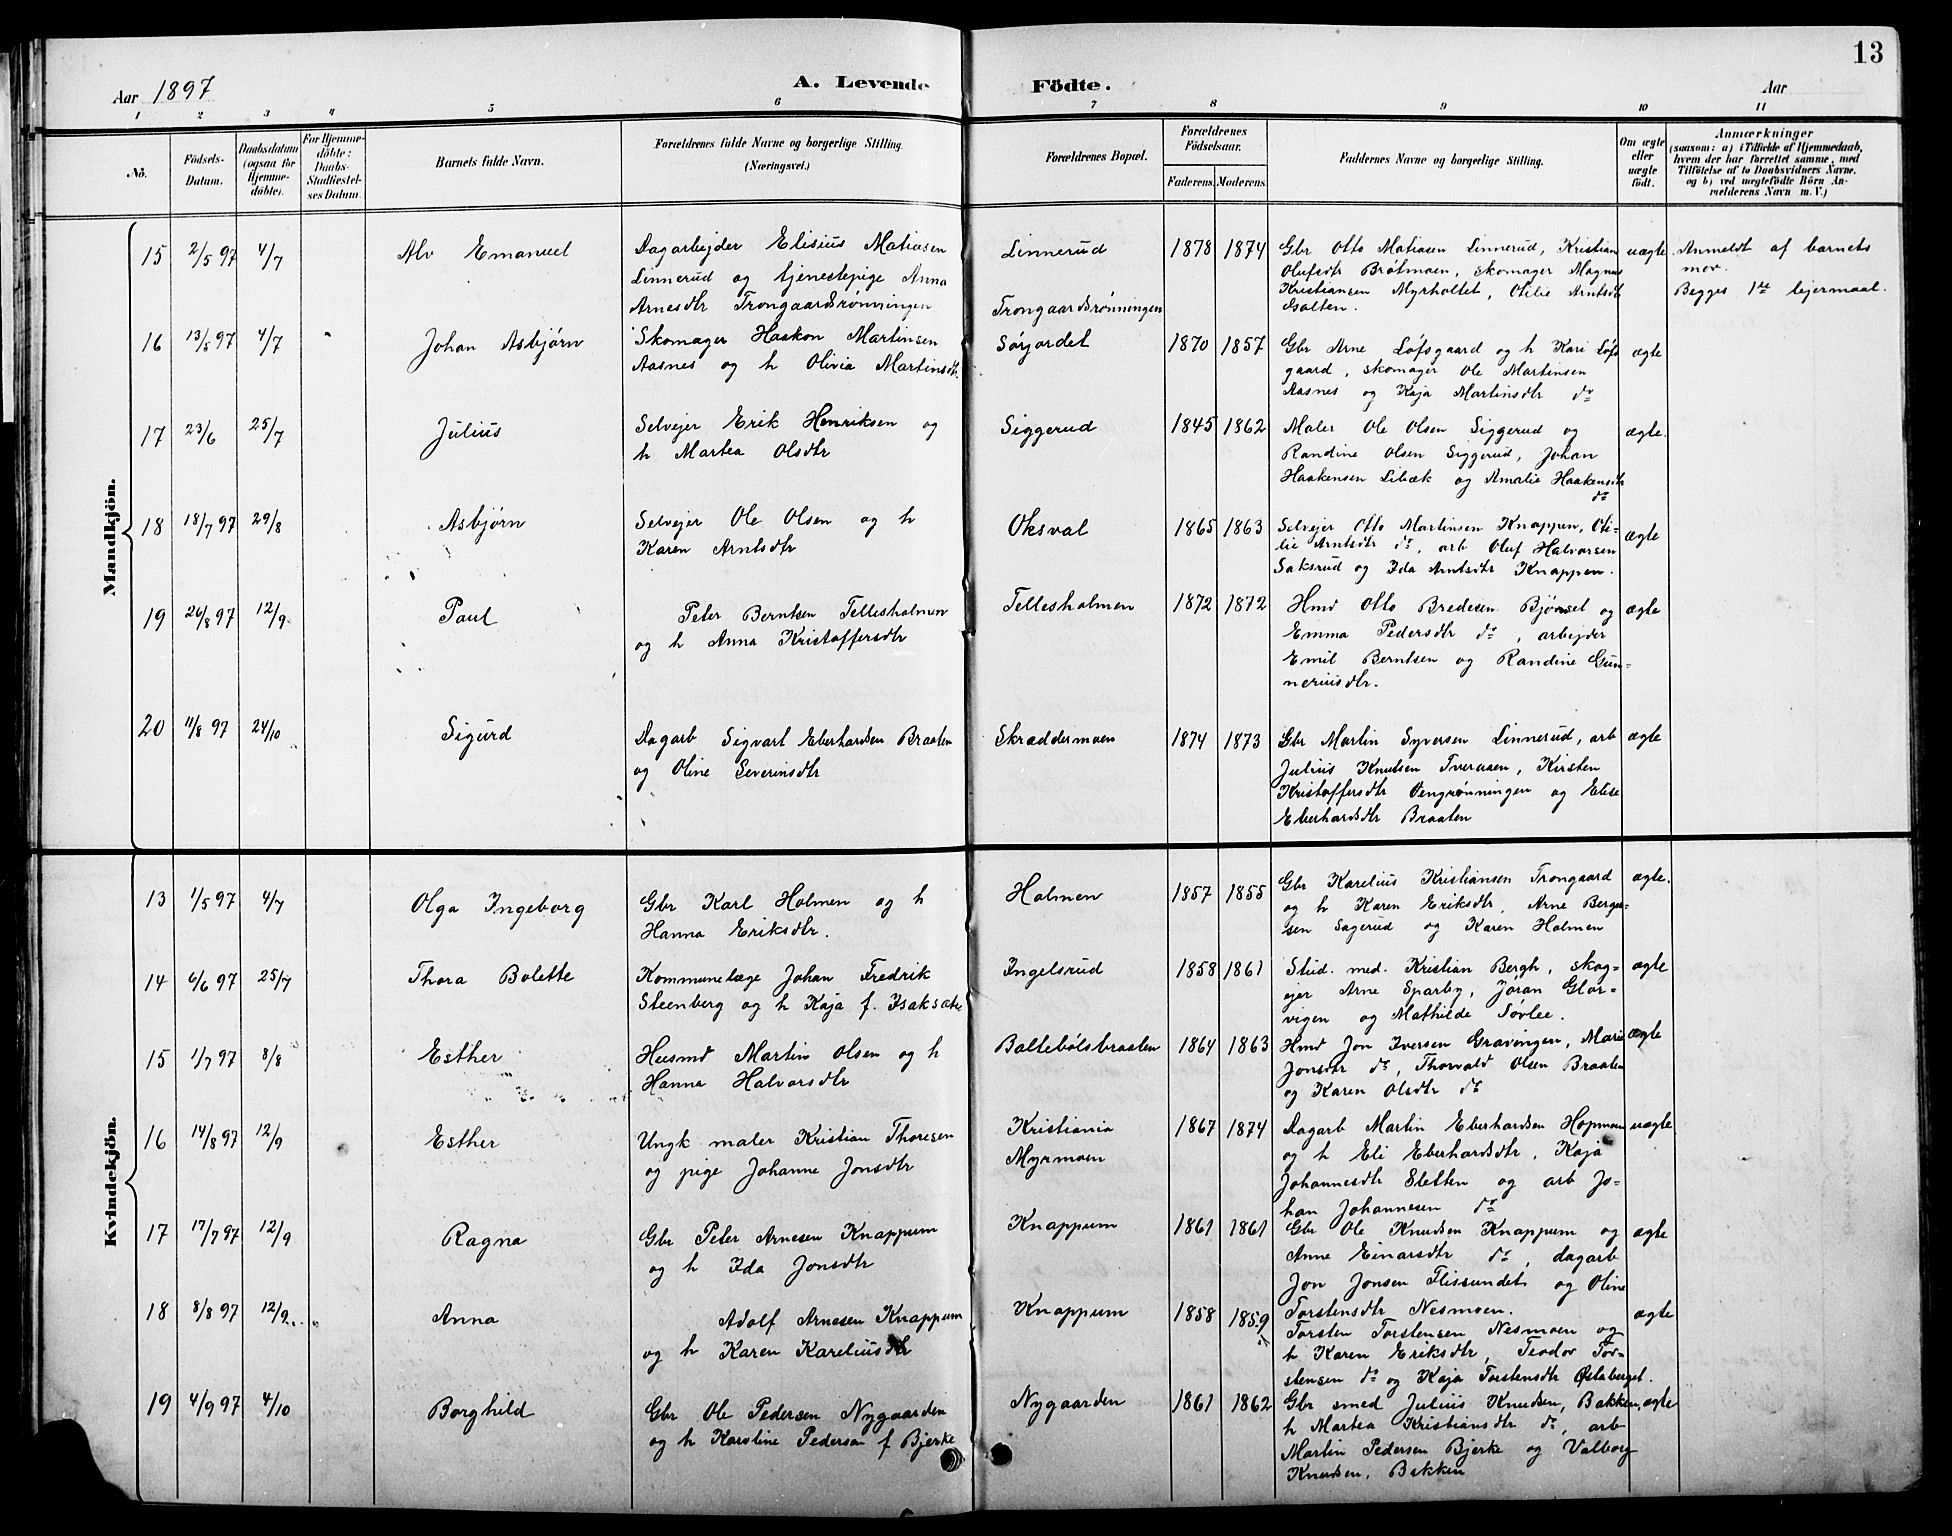 13
Aar 1897
A. Levende Födte.
Aar
1 2 3 4 5 6 7 8 9 10 11
No.
Födsels-Datum.
Daabsdatum (ogsaa for Hjemmedöbte).
For Hjemmedöbte: Daabs-Stadfæstelses Datum.
Barnets fulde Navn.
Forældrenes fulde Navne og borgerlige Stilling. (Næringsvei.)
Forældrenes Bopæl.
Forældrenes Födselsaar.
Faderens. Moderens.
Faddernes Navne og borgerlige Stilling.
Om ægte eller uægte födt.
Anmærkninger
(saasom: a) i Tilfælde af Hjemmedaab, hvem der har forrettet samme, med Tilföielse af to Daabsvidners Navne. og b) ved uægtefödte Börn Anmelderens Navn m. V.)
Mandkjön.
15 2/5 97 4/7 Alv Emanuel
Dagarbejder Elisius Matiasen
Linnerud og tjenestepige Anna
Arnesdtr Trongaardsrønningen
Linnerud
Trongaardsrønningen
1878 1874
Gbr Otto Matiasen Linnerud, Kristian
Olufsdtr Bråtmoen, skomager Magnus
Kristiansen Myrholtet, Otilie Arntsdtr
uægte
Anmeldt af barnets
mor.
Begges 1ste lejermaal.
16 13/5 97 4/7 Johan Asbjørn
Skomager Haakon Martinsen
Aasnes og h Olivia Martinsdtr.
Sørjordet
1870 1857
Gbr Arne Løfsgaard og h Kari Løfs
gaard, skomager Ole Martinsen
Aasnes og Kaja Martinsdtr do
ægte
17 23/6 25/7 Julius
Selvejer Erik Henriksen og
h Martea Olsdtr
Siggerud
1845 1862
Maler Ole Olsen Siggerud og
Randine Olsen Siggerud, Johan
Haakensen Libæk og Amalie Haakensdtr
do
ægte.
18 18/7 97 29/8 Asbjørn
Selvejer Ole Olsen og h
Karen Arntsdtr
Oksval
1865 1863
Selvejer Otto Martinsen Knappen, Oti-
lie Arntsdtr do, arb Oluf Halvorsen
Saksrud og Ida Arntsdtr Knappen.
ægte
19 26/8 97 12/9 Paul
Peter Berntsen Tellesholmen
og h Anna Kristoffersdtr
Tellesholmen
1872 1872
Hmd Otto Bredesen Bjønset og
Emma Pedersdtr do, arbejder
Emil Berntsen og Randine Gun-
neriusdtr.
ægte
20 11/8 97 24/10 Sigurd
Dagarb Sigvart Eberhardsen Braaten
og Oline Severinsdtr
Skræddermoen
1874 1873
Gbr Martin Syversen Linnerud, arb
Julius Knutsen Tveraaen, Kirsten
Kristoffersdtr Oengrønningen og Elise
Eberhardsdtr Braaten
ægte
Kvindekjön.
13 1/5 97 4/7 Olga Ingeborg
Gbr Karl Holmen og h
Hanna Eriksdtr.
Holmen
1857 1855
Gbr Karelius Kristiansen Trongaard
og h Karen Eriksdtr, Arne Berge-
sen Sagerud og Karen Holmen
ægte.
14 6/6 97 25/7 Thora Bolette
Kommunelæge Johan Fredrik
Steenberg og h Kaja f. Isaksæter
Ingelsrud
1858 1861
Stud. med. Kristian Bergh, skog-
ejer Arne Sparby, Joran Glor-
vigen og Mathilde Sørlee.
ægte
15 1/7 97 8/8 Esther
Husmd Martin Olsen og h
Hanna Halvorsdtr
Baltebølsbraaten
1864 1863
Hmd Jon Iversen Gravingen, Marie
Jonsdtr do, Thorvald Olsen Braaten
og Karen Olsdtr do
ægte
16 14/8 97 12/9 Esther
Ungk maler Kristian Thoresen
og pige Johanne Jonsdtr
Kristiania
Myrmoen
1867 1874
Dagarb Martin Eberhardsen Hopmoen
og h Eli Eberhardsdtr, Kaja
Johannesdtr Sletten og arb Jo-
han Johannesen do
uægte
17 17/7 97 12/9 Ragna
Gbr Peter Arnesen Knappum
og h Ida Jonsdtr
Knappum
1861 1861
Gbr Ole Knudsen Knappum og
Anne Einarsdtr do, dagarb
Jon Jonsen Flissundet og Oline
Torstensdtr Nesmoen.
ægte
18 8/8 97 12/9 Anna
Adolf Arnesen Knappum
og h Karen Kareliusdtr
Knappum
1858 1859
Torsten Torstensen Nesmoen og
h Karen Eriksdtr, Teodor Tor-
stensen do og Kaja Torstensdtr Østaberget.
ægte
19 4/9 97 4/10 Borghild
Gbr Ole Pedersen Nygaarden
og h Karoline Pedersen f Bjerke
Nygaarden
1861 1862
Gbr smed Julius Knudsen, Bakken,
h Martea Kristiansdtr do, arb
Martin Pedersen Bjerke og Valborg
Knudsen, Bakken
ægte